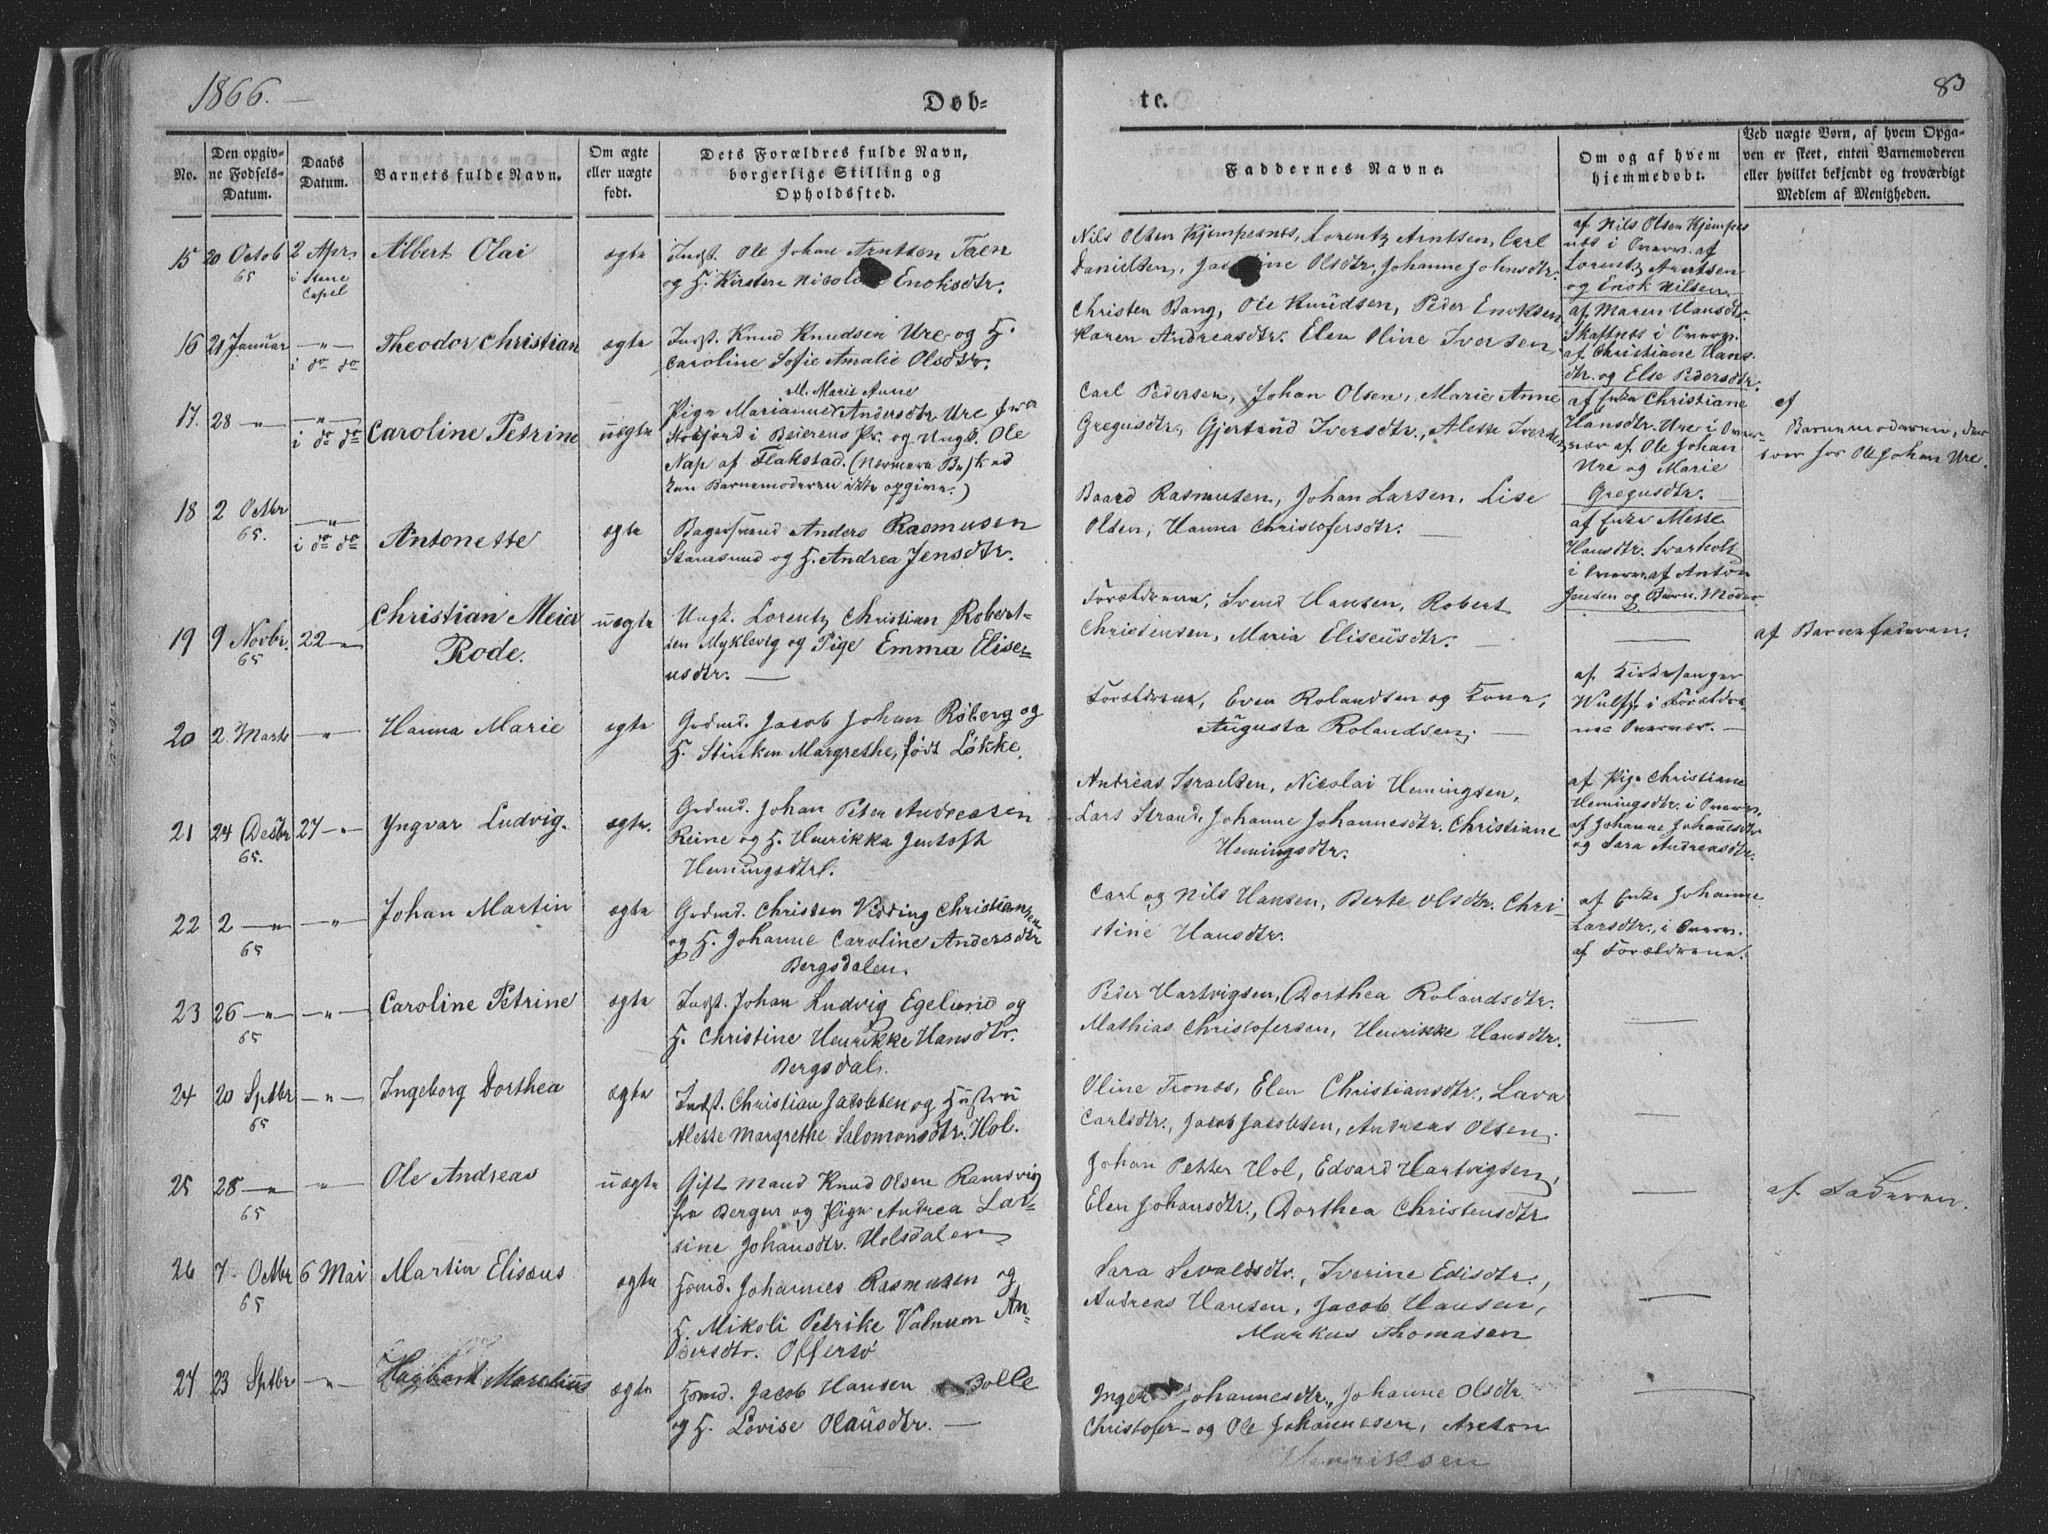 1866.
Døb-
No.
Den opgiv-
ne Fødsels-
Datum.
Daabs
Datum.
Barnets fulde Navn.
Om ægte
eller uægte
født.
Dets Forældres fulde Navn,
borgerlige Stilling og
Opholdssted.
15
20 Octob
65
2 Apr.
i Stene
Capel
Albert Olai
ægte
Indst. Ole Johan Arntsen Teen
og H. Kirsten Nicoli Enoksdtr.
16
21 Januar
-"-
i do do
Theodor Christian
ægte
Indst. Knud Knudsen Ure og H.
Caroline Sofie Amalie Olsdtr.
17.
28 -"-
-"-
i do do
Caroline Petrine
uægte
ell. Marie Anne
Pige Marianne Andersdtr. Ure fra
i Beierens Pr. og Ungk. Ole
Nap af Flakstad. (Nærmere Besked
kan Barnemoderen ikke opgive.)
18
2 Octbr
65.
-"-
i do do
Antonette
ægte
Anders Rasmusen
Stamsund og H. Andrea Jensdtr.
19
9 Novbr.
65
22 -"-
Christian Meier
Rode.
uægte
Ungk. Lorentz Christian Robert-
sen Myklevig og Pige Emma Elise-
usdtr. —
20
2. Marts
-"-
Hanna Marie
ægte
Grdmd. Jacob Johan Røberg og
H. Stinken Margrethe, født Løkke.
21
24 Desbr
65.
27 -"-
Yngvar Ludvig.
ægte.
Grdmd. Johan Peter Andreasen
Reine og H. Henrikka Jentoft
Hemingsdtr.
22
2 -"-
65
-"-
Johan Martin
ægte
Grdmd. Christen Vidding Christiansen
og H. Johanne Caroline Andersdtr
Bergsdalen.
23
26 -"-
65
-"-
Caroline Petrine
ægte
Indst. Johan Ludvig Egelund og
H. Christine Henrikke Hansdtr.
Bergsdal.
24
20 Sptbr
65
-"-
Ingeborg Dorthea
ægte
Indst. Christian Jacobsen og Hustru
Alette Margrethe Salomonsdtr. Hol.
25
28 -"-
65
-"-
Ole Andreas
uægte
Gift Mand Knud Olsen Ramsvig
fra Bergen og Pige Andrea Lar-
sine Johansdtr. Holsdalen
26
7. Octbr
65
6 Mai
Martin Elisæus
ægte
Johannes Rasmusen og
H. Mikoli Petrike Valnum An-
dersdtr. Offersø
27
23 Sptbr
-"-
Hagbart Marelius
ægte
Jacob Hansen Bolle
og H. Lovise Olausdtr. —
te.
83
Faddernes Navne.
Om og af hvem
hjemmedøbt.
Ved uægte Børn, af hvem Opga-
ven er skeet, enten Barnemoderen
eller hvilket bekjendt og troværdigt
Medlem af Menigheden.
Nils Olsen Kjempenes, Lorentz Arntsen, Carl
Danielsen, Olsdtr, Johanne Johnsdtr.
af Nils Olsen Kjempe
næs i Overv. af
Lorentz Arntsen
og Enok Nilsen.
Christen Bang, Ole Knudsen, Peder Enoksen
Karen Andreasdtr. Elen Oline Iversen.
af Maren Hansdtr.
Skaftnes i Overv.
af Christiane Hans
dtr. og Else Pedersdtr.
Carl Pedersen, Johan Olsen, Marie Anne
Gregusdtr., Gjertrud Iversdtr., Alette Iversen,
af Enke Christiane
Hansdtr. Ure i Over-
vær af Ole Johan
Ure og Marie
Gregusdtr.
af
Barnemoderen,
for Ole Johan Ure.
Baard Rasmusen, Johan Larsen, Lise
Olsen, Hanna Christofersdtr. —
af Enke Mette
Hansdtr. Svarholt
i Overv. af Anton
Jensen og Barn. Moder
Forældrene, Svend Hansen, Robert
Christensen, Maria Eliseusdtr. —
af Barnefaderen.
Forældrene, Even Rolandsen og Kone,
Augusta Rolandsen. —
af Kirkesanger
Wulff i Forældre-
nes Overvær. —
Andreas Israelsen, Nicolai Hemingsen,
Lars Strand, Johanne Johannesdtr. Christiane
Hemingsdtr.
af Pige Christiane
Hemingsdtr. i Overv.
af Johanne Johannesdtr
og Sara Andreasdtr.
Carl og Nils Hansen, Berte Olsdtr. Chri-
stine Hansdtr.
af Enke Johanne
Larsdtr., i Overv.
af Forældrene.
Peder Hartvigsen, Dorthea Rolandsdtr.
Mathias Christofersen, Henrikke Hansdtr.
Oline Tronæs, Elen Christiansdtr., Lava
Carlsdtr., Jacob Jacobsen, Andreas Olsen.
Johan Petter Hol, Edvard Hartvigsen,
Elen Johansdtr., Dorthea Christensdtr
af Faderen.
Sara Sevaldsdtr., Iverine Edisdtr.,
Andreas Hansen, Jacob Hansen,
Markus Thomasen
Inger Johannesdtr., Johanne Olsdtr.
Christofer - og Ole Johannesen, Areton
Henriksen